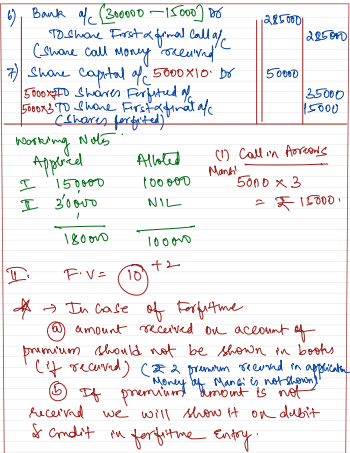 6) Bank a/c [300000 - 15000] Dr 285000
To Share First & final Call a/c 285000
(Share Call Money received
7) Share Capital a/c 5000x10. Dr 50000
5000x7 To Shares Forfited a/c 35000
5000x3 To Share First & final a/c 15000
(Shares forfited)
Working Notes
Applied Alloted
I 150000 100000
II 30000 NIL
180000 100000
(1) Call in Arrears
Mansi
5000 x 3
= ₹ 15000.
II. F.V = 10 +2
→ In Case of Forfitme
(a) amount received on account of
premium should not be shown in books
(if received) (₹ 2 premium received in application
Money of Mansi is not shown)
(b) If premium amount is not
received we will show it on debit
& Credit in forfitme entry.